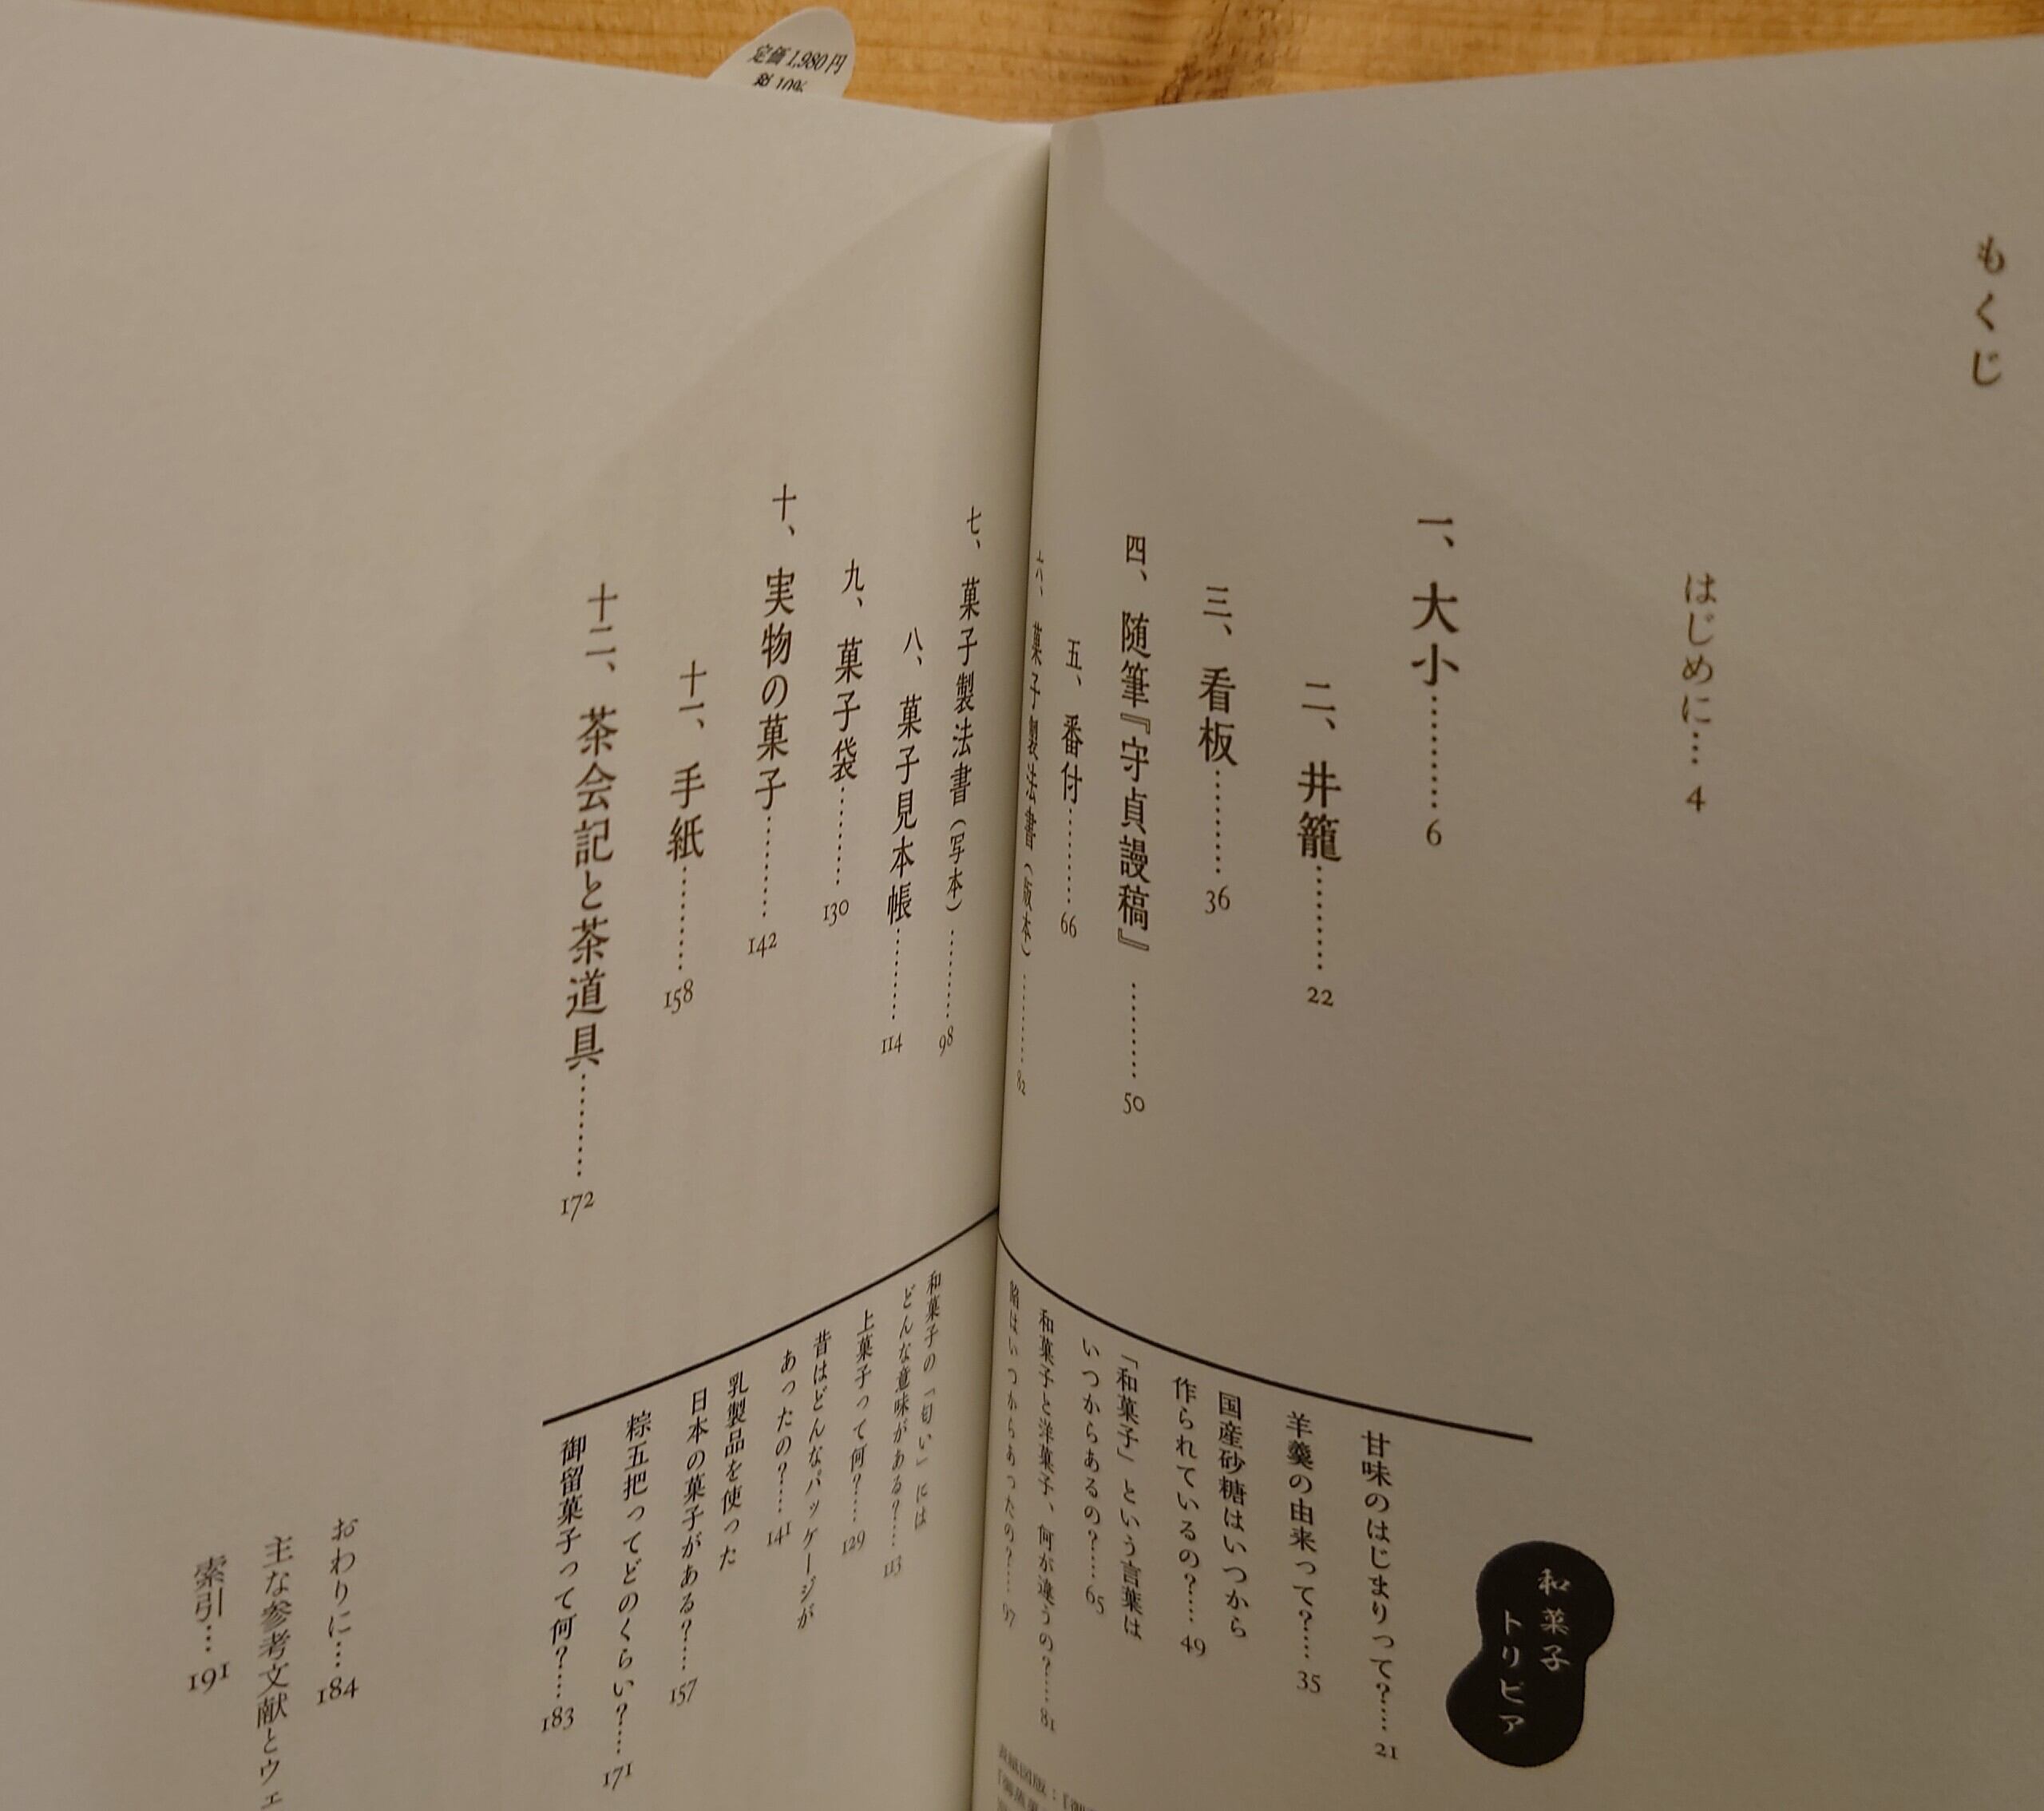 定価1,980円
税10%
もくじ
はじめに…4
一、大小………6
二、井籠………22
三、看板………36
四、随筆『守貞謾稿』………50
五、番付………66
六、菓子製法書（版本）………82
七、菓子製法書（写本）………98
八、菓子見本帳………114
九、菓子袋………130
十、実物の菓子………142
十一、手紙………158
十二、茶会記と茶道具………172
和菓子
トリビア
甘味のはじまりって？……21
羊羹の由来って？……35
国産砂糖はいつから
作られているの？……49
「和菓子」という言葉は
いつからあるの？……65
和菓子と洋菓子、何が違うの？……81
餡はいつからあったの？……97
和菓子の「匂い」には
どんな意味がある？……113
上菓子って何？……129
昔はどんなパッケージが
あったの？……141
乳製品を使った
日本の菓子がある？……157
粽五把ってどのくらい？……171
御留菓子って何？……183
おわりに…184
主な参考文献とウェ
索引…191